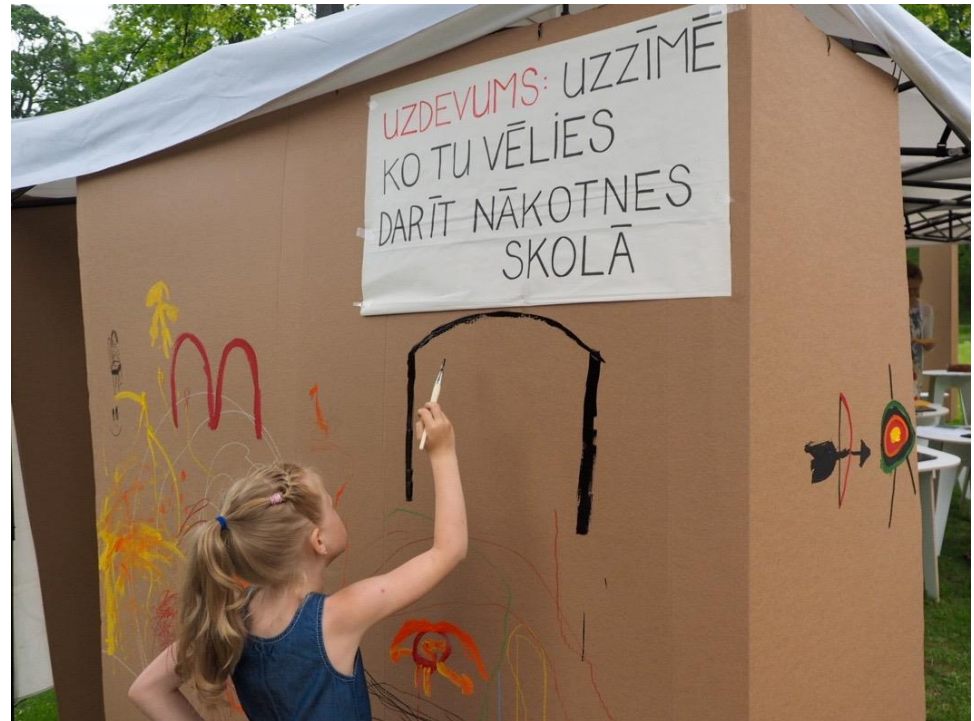 UZDEVUMS: UZZĪMĒ
KO TU VĒLIES
DARĪT NĀKOTNES
SKOLĀ